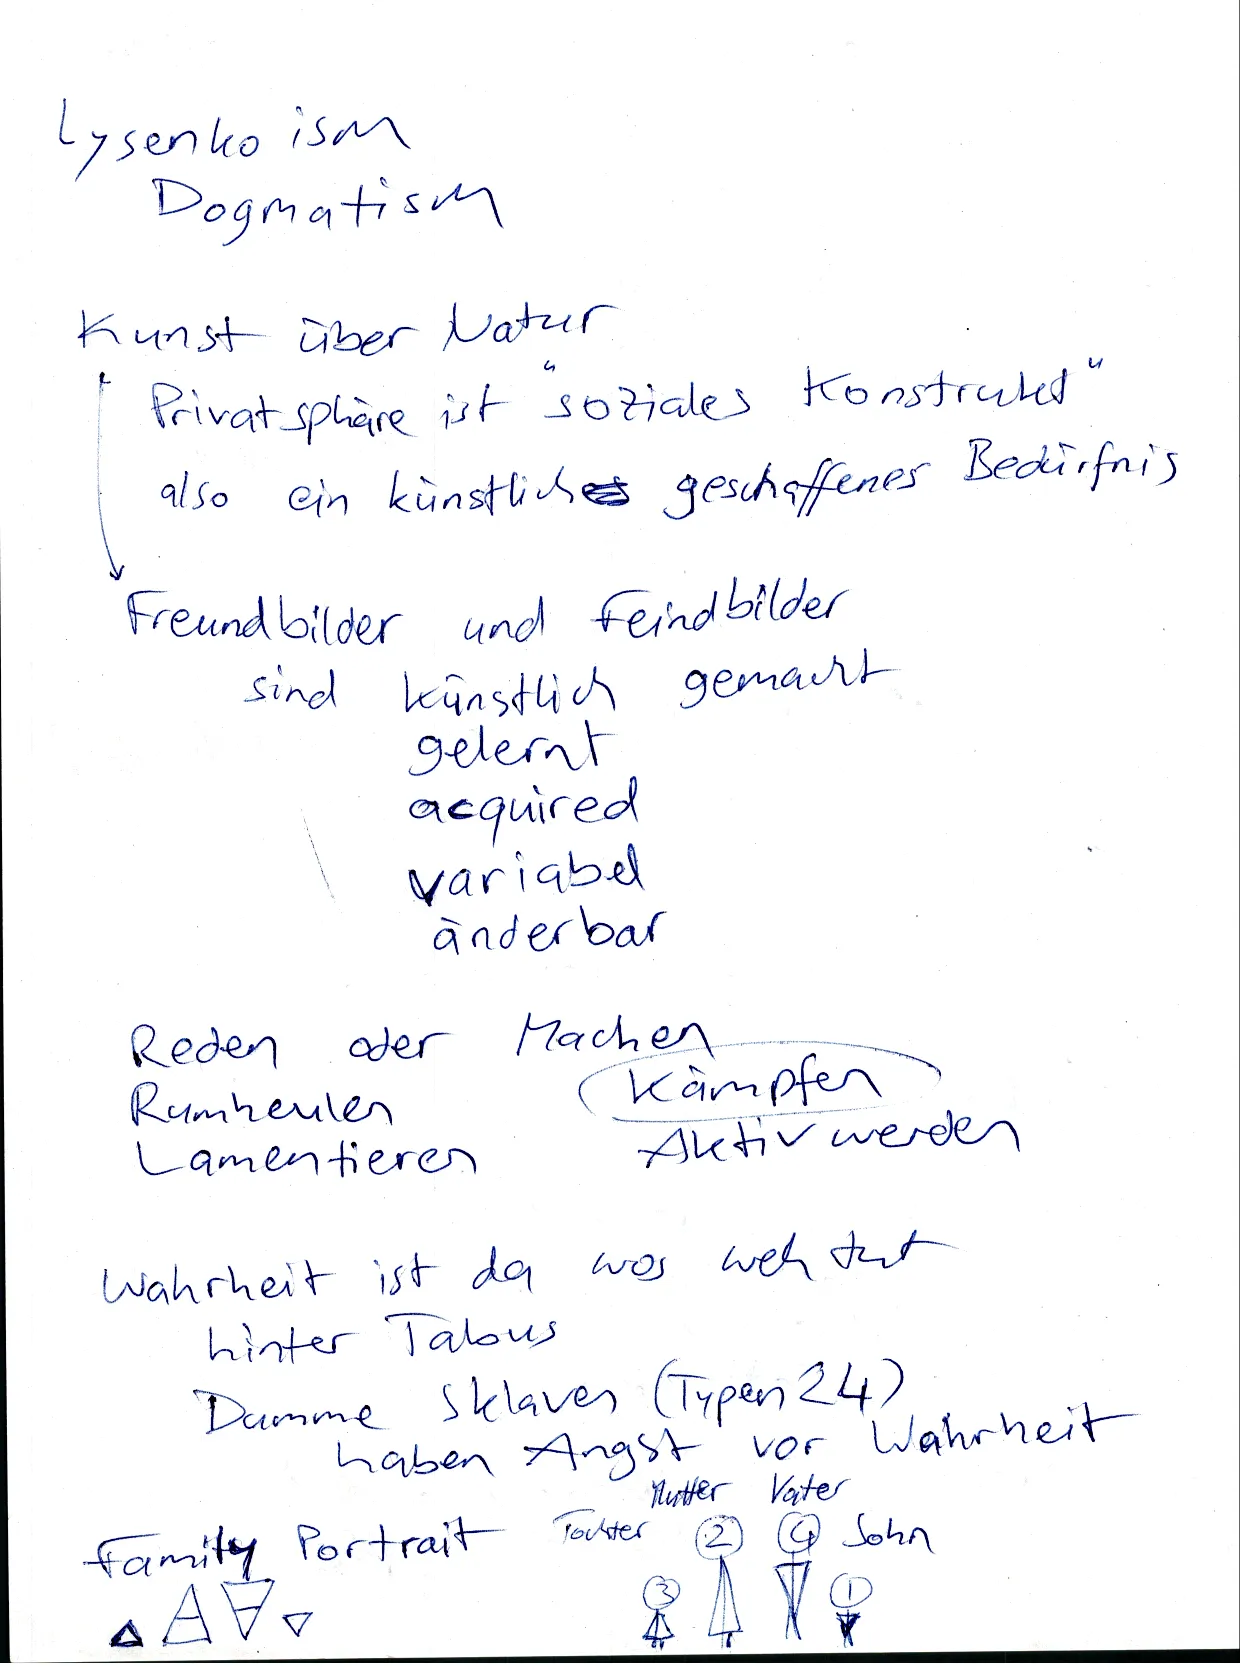 Lysenkoism
Dogmatism
Kunst über Natur
Privatsphäre ist "soziales Konstrukt"
also ein künstliches geschaffenes Bedürfnis
Freundbilder und Feindbilder
sind künstlich gemacht
gelernt
acquired
variabel
änderbar
Reden oder Machen
Rumheulen Kämpfen
Lamentieren Aktiv werden
Wahrheit ist da wos weh tut
hinter Tabus
Dumme Sklaven (Typen 24)
haben Angst vor Wahrheit
Mutter Vater
Family Portrait Tochter 2 4 Sohn
3 1